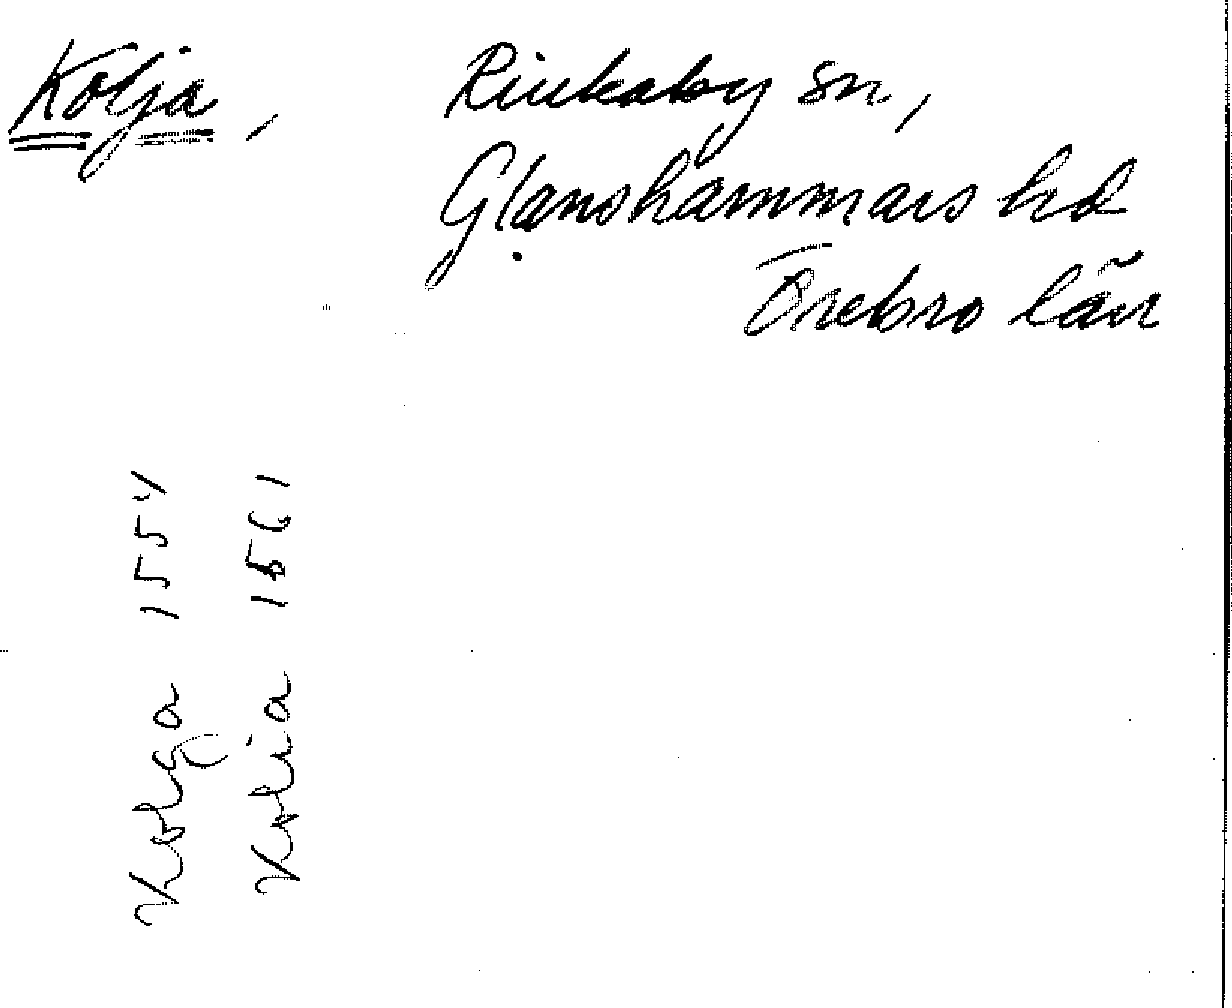 Kölja, Rinkaby sn,
Glanshammars hd
Örebro län
Kolya 1554
Kolia 1561